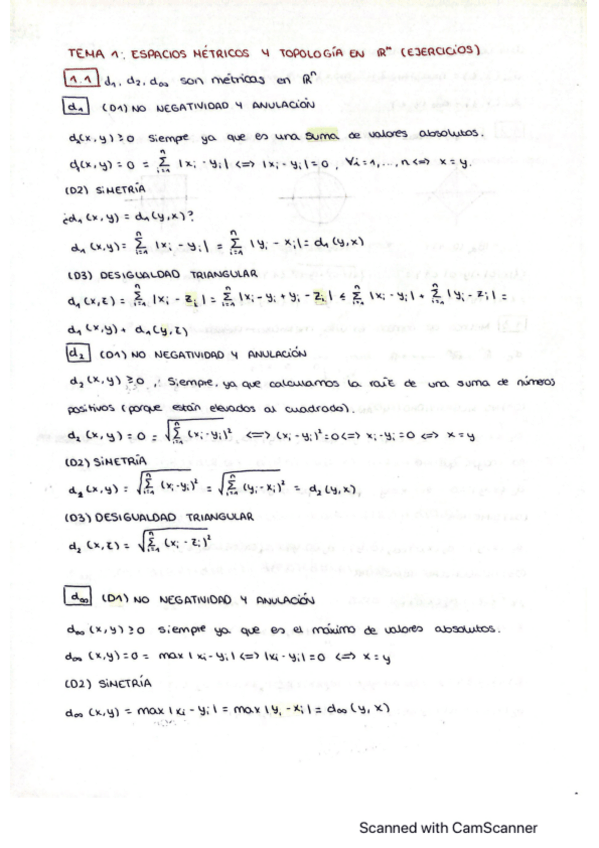 TEMA 1: ESPACIOS MÉTRICOS Y TOPOLOGÍA EN ℝⁿ (EJERCICIOS)
1.1 d₁, d₂, d∞ son métricas en ℝⁿ
d₁ (D1) NO NEGATIVIDAD Y ANULACIÓN
d₁(x,y) ≥ 0 siempre ya que es una suma de valores absolutos.
d₁(x,y) = 0 = ∑ᵢ₌₁ⁿ |xᵢ - yᵢ| <=> |xᵢ - yᵢ| = 0, ∀i=1,...,n <=> x = y.
(D2) SIMETRÍA
¿d₁(x,y) = d₁(y,x)?
d₁(x,y) = ∑ᵢ₌₁ⁿ |xᵢ - yᵢ| = ∑ᵢ₌₁ⁿ |yᵢ - xᵢ| = d₁(y,x)
(D3) DESIGUALDAD TRIANGULAR
d₁(x,z) = ∑ᵢ₌₁ⁿ |xᵢ - zᵢ| = ∑ᵢ₌₁ⁿ |xᵢ - yᵢ + yᵢ - zᵢ| ≤ ∑ᵢ₌₁ⁿ |xᵢ - yᵢ| + ∑ᵢ₌₁ⁿ |yᵢ - zᵢ| =
d₁(x,y) + d₁(y,z)
d₂ (D1) NO NEGATIVIDAD Y ANULACIÓN
d₂(x,y) ≥ 0, siempre, ya que calculamos la raíz de una suma de números
positivos (porque están elevados al cuadrado).
d₂(x,y) = 0 = √(∑ᵢ₌₁ⁿ (xᵢ - yᵢ)²) <=> (xᵢ - yᵢ)² = 0 <=> xᵢ - yᵢ = 0 <=> x = y
(D2) SIMETRÍA
d₂(x,y) = √(∑ᵢ₌₁ⁿ (xᵢ - yᵢ)²) = √(∑ᵢ₌₁ⁿ (yᵢ - xᵢ)²) = d₂(y,x).
(D3) DESIGUALDAD TRIANGULAR
d₂(x,z) = √(∑ᵢ₌₁ⁿ (xᵢ - zᵢ)²)
d∞ (D1) NO NEGATIVIDAD Y ANULACIÓN
d∞(x,y) ≥ 0 siempre ya que es el máximo de valores absolutos.
d∞(x,y) = 0 = max |xᵢ - yᵢ| <=> |xᵢ - yᵢ| = 0 <=> x = y
(D2) SIMETRÍA
d∞(x,y) = max |xᵢ - yᵢ| = max |yᵢ - xᵢ| = d∞(y,x)
Scanned with CamScanner